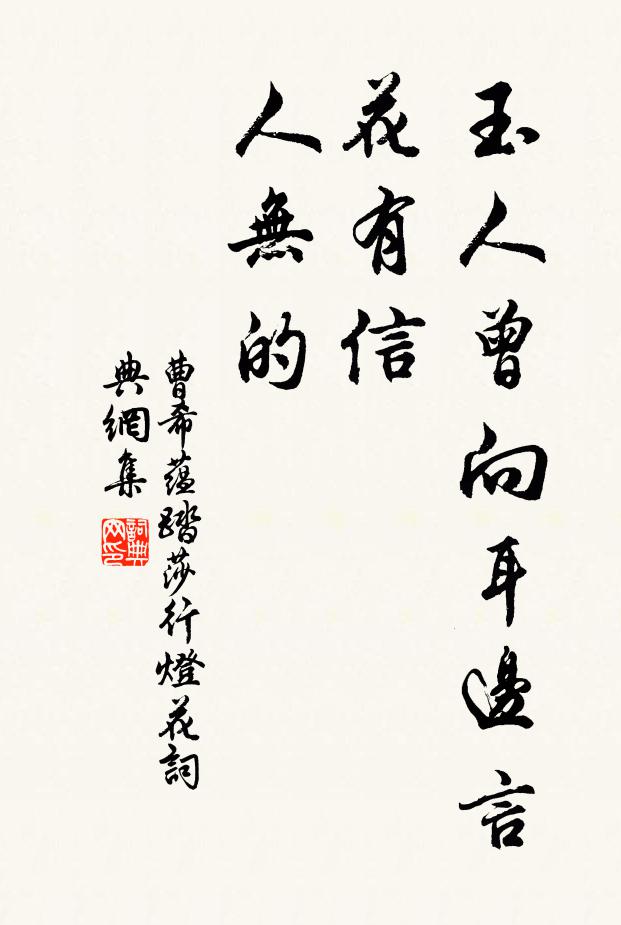 玉人曾向耳邊言
花有信
人無的
曹希蕴踏莎行燈花詞
典網集
詞典网印